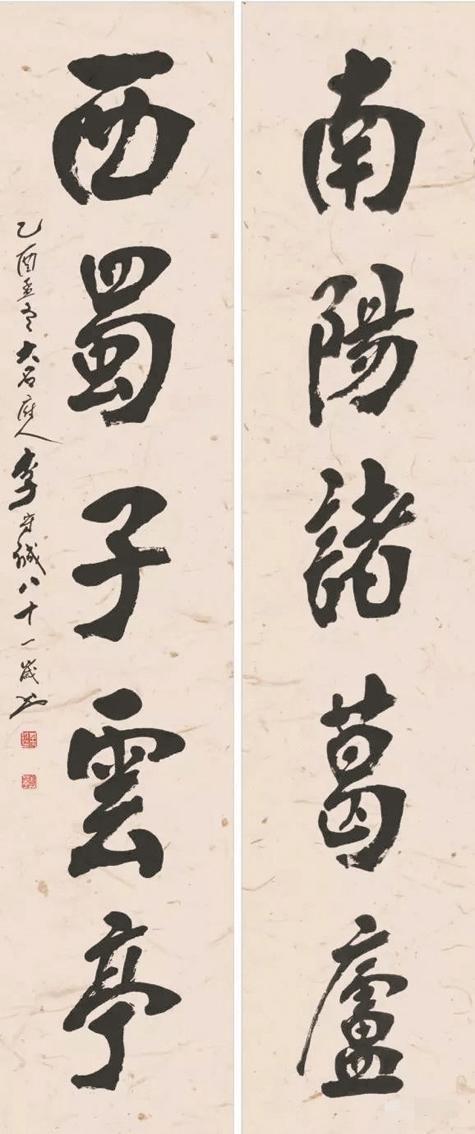 南陽諸葛廬
西蜀子雲亭
乙酉孟冬大名府人李守誠八十一歲书